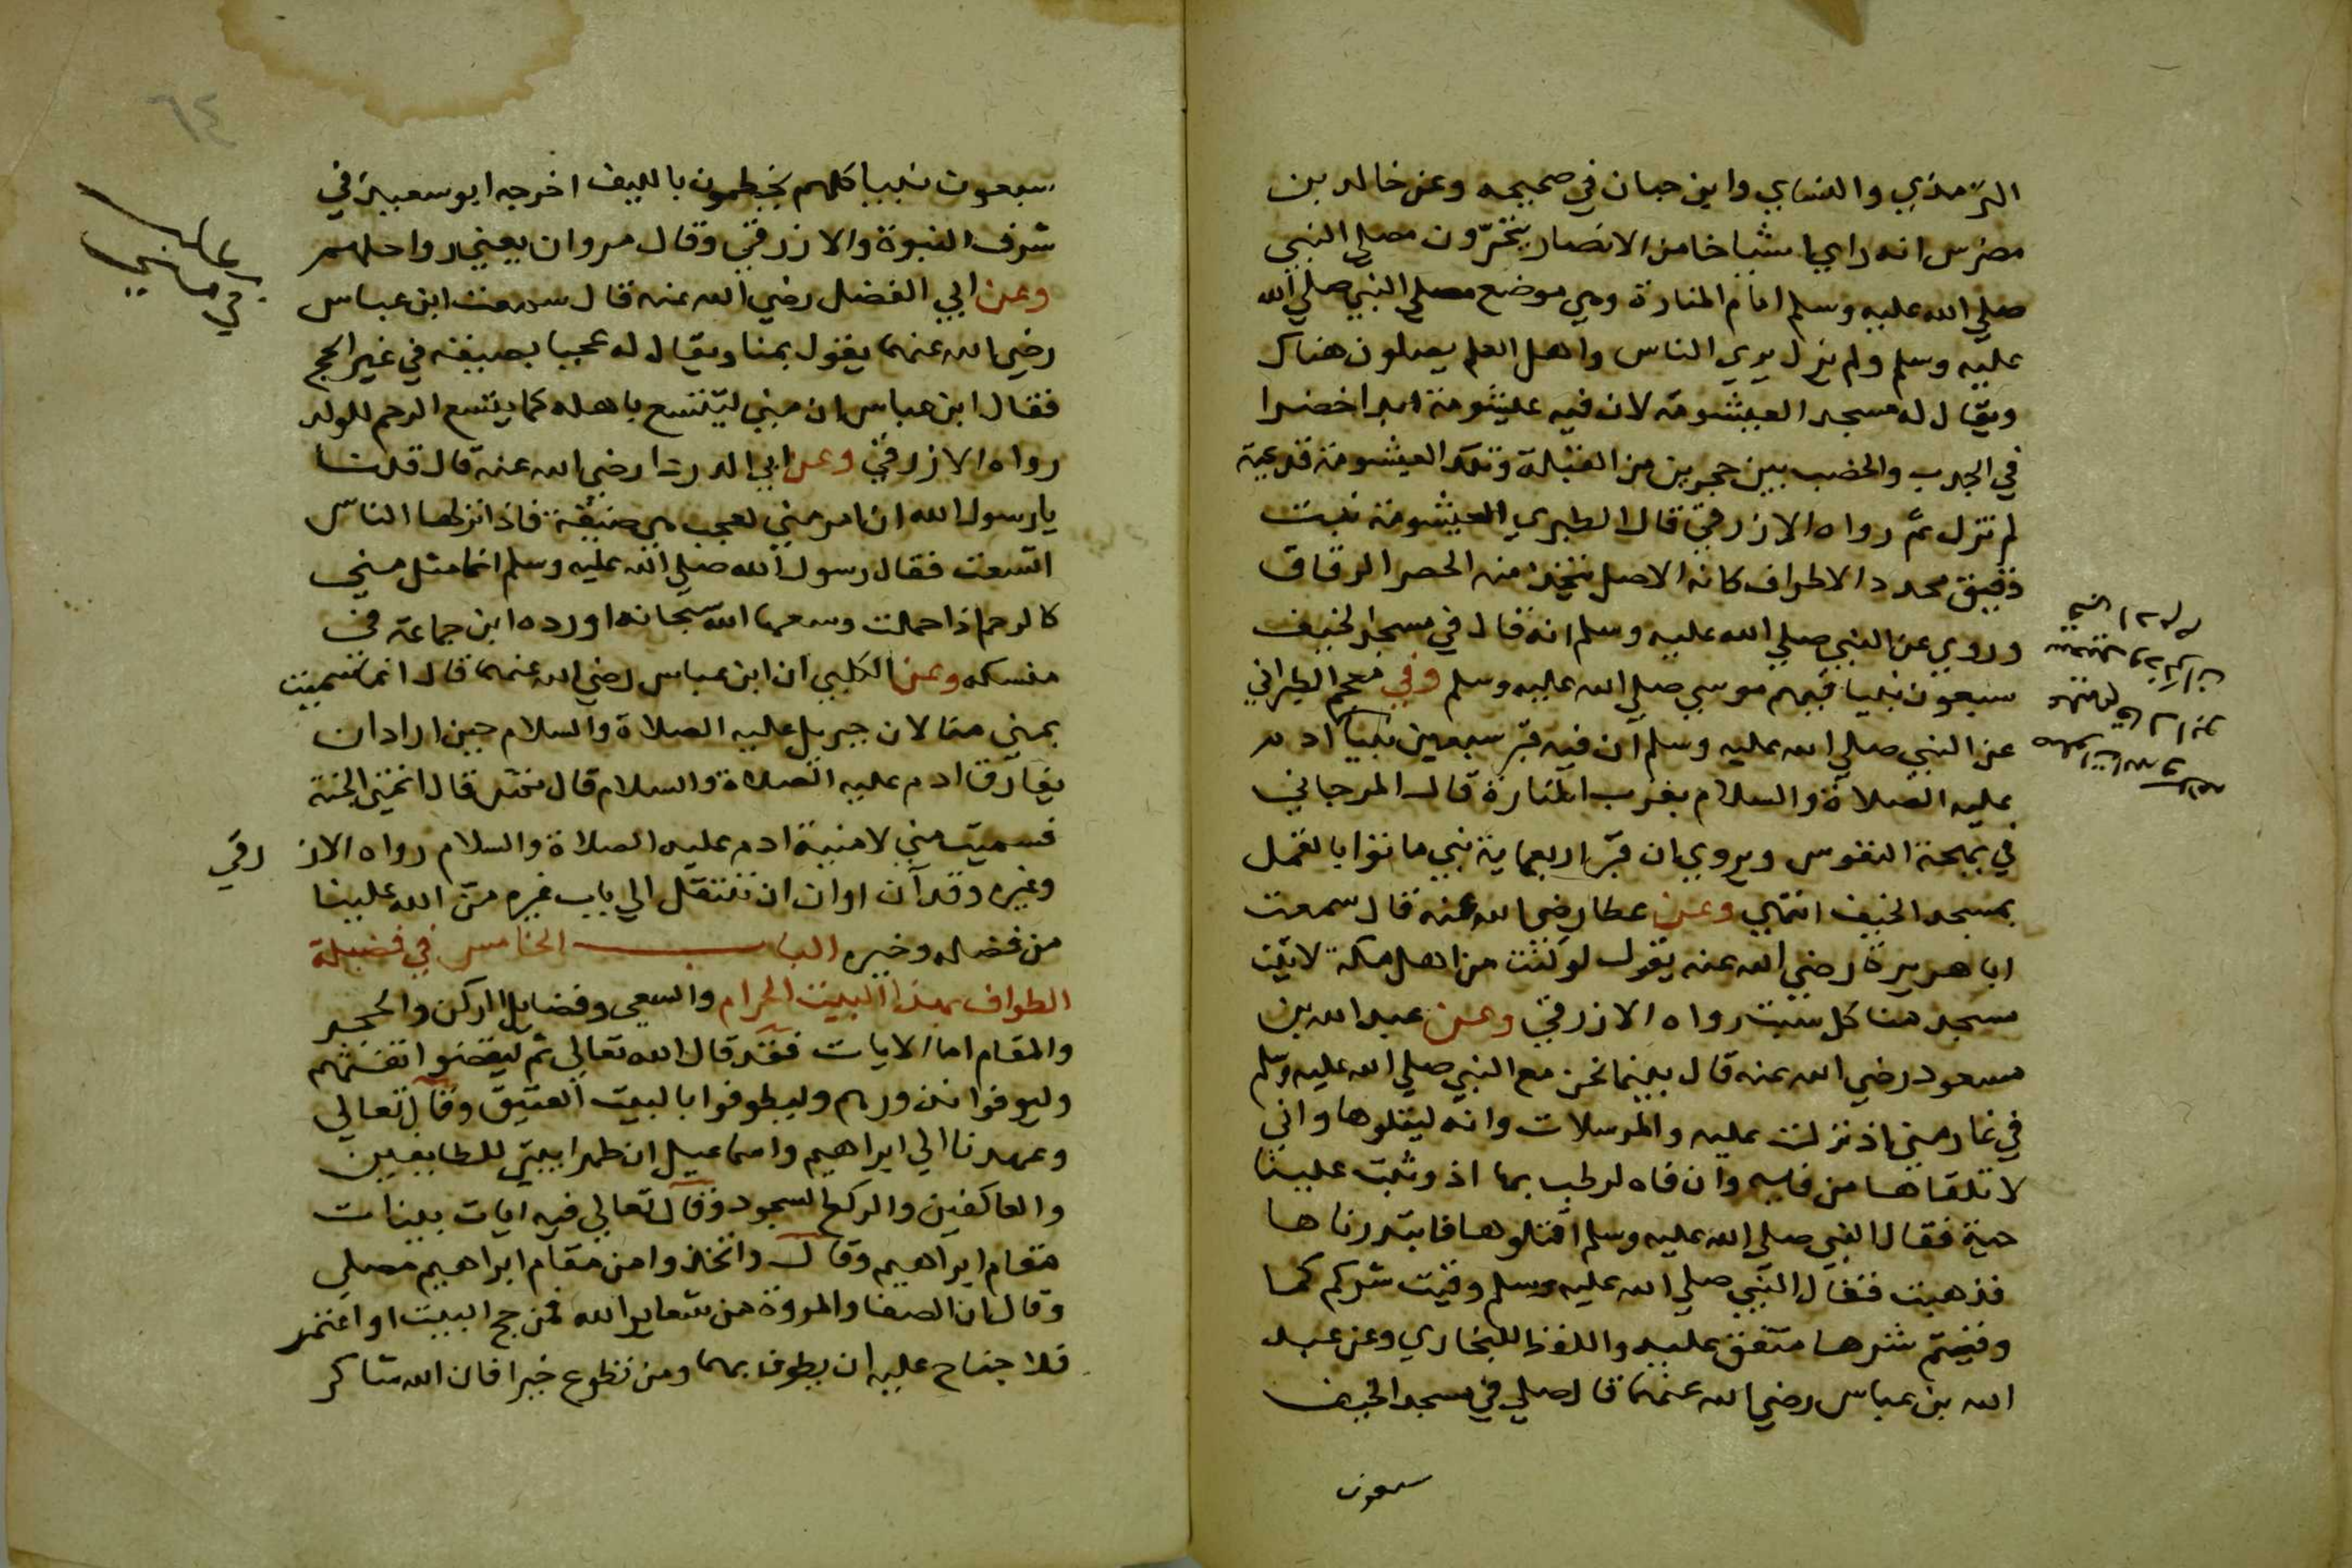 الترمذي والنساي وابن حبان في صحيحه وعن خالد بن
مضرس انه راي اشياخا من الانصار يتحرّون مصلي النبي
صلي الله عليه وسلم امام المنارة وهي موضع مصلي النبي صلي الله
عليه وسلم ولم نزل يري الناس واهل العلم يصلون هناك
ويقال له مسجد العيشومة لان فيه عليشومة ابدا خضرا
في الجدب والخصب بين حجرين من القبلة وتلك العيشومة قديمة
لم تزل ثمّ رواه الازرقي قال الطبري العيشومة نبت
دقيق محدد الاطراف كانه الاصل يتخذ منه الحصر الرقاق
وروي عن النبي صلي الله عليه وسلم انه قال في مسجد الخيف
سبعون نبيا فيهم موسي صلي الله عليه وسلم وفي معجم الطبراني
عن النبي صلي الله عليه وسلم ان فيه قبر سبعين نبيا ادم
عليه الصلاة والسلام بقرب المنارة قال المرجاني
في بهجة النفوس ويروي ان قبر اربعماية نبي ماتوا بالقمل
بمسجد الخيف انتهي وعن عطا رضي الله عنه قال سمعت
ابا هريرة رضي الله عنه يقول لو كنت من اهل مكة لاتيت
مسجد منا كل سبت رواه الازرقي وعن عبد الله بن
مسعود رضي الله عنه قال بينما نحن مع النبي صلي الله عليه وسلم
في غار مني اذ نزلت عليه والمرسلات وانه ليتلوها واني
لاتلقاها من فيه وان فاه لرطب بها اذ وثبت علينا
حية فقال النبي صلي الله عليه وسلم اقتلوها فابتدرناها
فذهبت فقال النبي صلي الله عليه وسلم وقيت شركم كما
وقيتم شرها متفق عليه واللفظ للبخاري وعن عبد
الله بن عباس رضي الله عنهما قال صلي في مسجد الخيف
سبعون
سبعون نبيا كلهم يخطمون بالليف اخرجه ابو سعيد في
شرف النبوة والازرقي وقال مروان يعني رواحلهم
وعن ابي الفضل رضي الله عنه قال سمعت ابن عباس
رضي الله عنهما يقول بمنا ويقال له عجبا بضيقه في غير الحج
فقال ابن عباس ان مني ليتسع باهله كما يتسع الرحم للولد
رواه الازرقي وعن ابي الدردا رضي الله عنه قال قلنا
يا رسول الله ان امر مني لعجب هي ضيقة فاذا نزلها الناس
اتسعت فقال رسول الله صلي الله عليه وسلم انما مثل مني
كالرحم اذا حملت وسعها الله سبحانه اورده ابن جماعة في
منسكه وعن الكلبي ان ابن عباس رضي الله عنهما قال انما سميت
بمني منا لان جبريل عليه الصلاة والسلام حين اراد ان
يفارق ادم عليه الصلاة والسلام قال تمن قال اتمني الجنة
فسميت مني لامنية ادم عليه الصلاة والسلام رواه الازرقي
وغيره وقد آن اوان ان ننتقل الي باب غيره منّ الله علينا
من فضله وخيره الباب الخامس في فضيلة
الطواف بهذا البيت الحرام والسعي وفضايل الركن والحجر
والمقام اما الايات فقد قال الله تعالي ثم ليقضوا تفثهم
وليوفوا نذورهم وليطوفوا بالبيت العتيق وقال تعالي
وعهدنا الي ابراهيم واسماعيل ان طهرا بيتي للطايفين
والعاكفين والركع السجود وقال تعالي فيه ايات بينات
مقام ابراهيم وقال واتخذوا من مقام ابراهيم مصلي
وقال ان الصفا والمروة من شعاير الله فمن حج البيت او اعتمر
فلا جناح عليه ان يطوف بهما ومن تطوع خيرا فان الله شاكر
٦٤